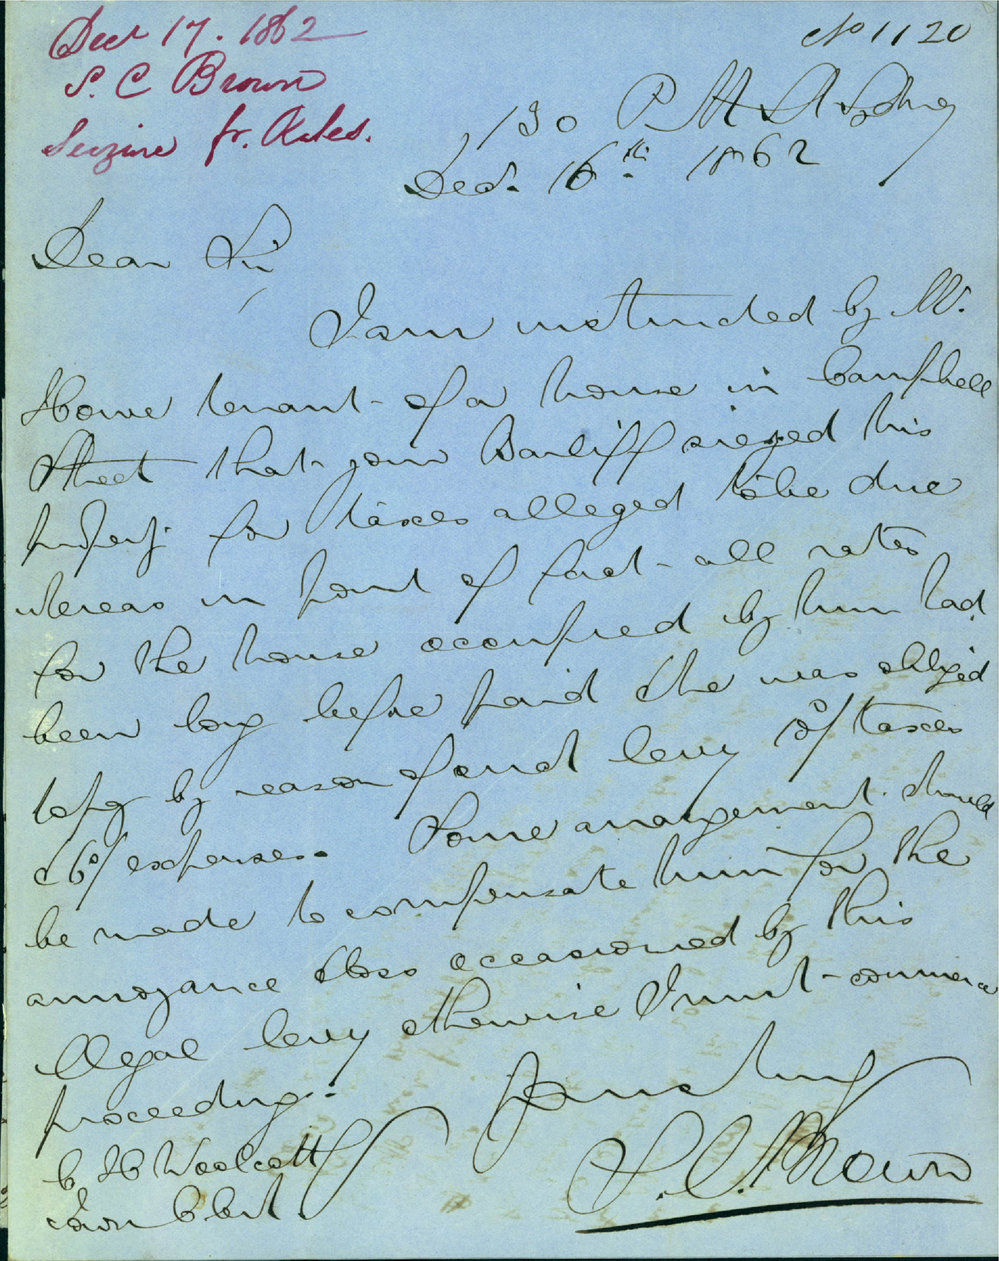 Decr 17. 1862
S. C Brown
Seizure fr. Rates.
No 1120
130 Pitt St Sydney
Decr. 16th. 1862
Dear Sir
I am instructed by Mr.
Howe tenant of a house in Campbell
Street that your Bailiff siezed his
property for taxes alleged to be due
whereas in point of fact all rates
for the house occupied by him had
been long before paid & he was obliged
to pay by reason of said levy taxes
& 6/ expenses. Some arrangement should
be made to compensate him for the
annoyance & loss occasioned by this
illegal levy otherwise I must commence
proceedings.
Yours truly
S. C. Brown
C H Woolcott
Town Clerk.